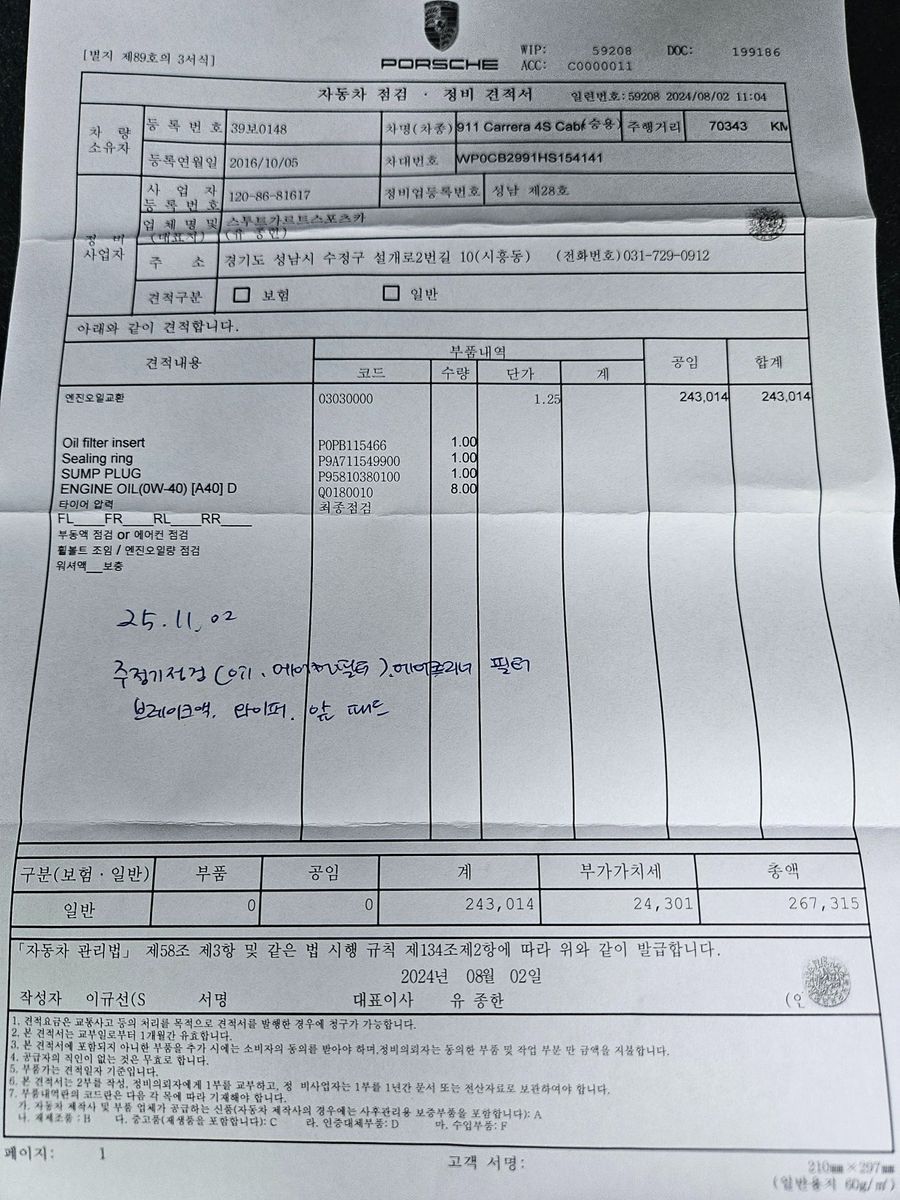 [별지 제89호의 3서식]
PORSCHE
WIP: 59208 DOC: 199186
ACC: C0000011
자동차 점검 · 정비 견적서 일련번호:59208 2024/08/02 11:04
차 량 소유자
등 록 번 호 39보0148 차명(차종) 911 Carrera 4S Cabr(승용) 주행거리 70343 KM
등록연월일 2016/10/05 차대번호 WP0CB2991HS154141
정 비 사업자
사 업 자 등 록 번 호 120-86-81617 정비업등록번호 성남 제28호
업 체 명 및 (대표자) 스투트가르트스포츠카 (유 종한)
주 소 경기도 성남시 수정구 설개로2번길 10(시흥동) (전화번호)031-729-0912
견적구분 □ 보험 □ 일반
아래와 같이 견적합니다.
견적내용 부품내역 공임 합계
코드 수량 단가 계
엔진오일교환 03030000 1.25 243,014 243,014
Oil filter insert P0PB115466 1.00
Sealing ring P9A711549900 1.00
SUMP PLUG P95810380100 1.00
ENGINE OIL(0W-40) [A40] D Q0180010 8.00
타이어 압력 최종점검
FL___FR___RL___RR___
부동액 점검 or 에어컨 점검
휠볼트 조임 / 엔진오일량 점검
워셔액__보충
25.11.02
주정기점검 (오일. 에어컨필터). 에어크리너 필터
브레이크액. 와이퍼. 앞 패드
구분(보험 · 일반) 부품 공임 계 부가가치세 총액
일반 0 0 243,014 24,301 267,315
「자동차 관리법」 제58조 제3항 및 같은 법 시행 규칙 제134조제2항에 따라 위와 같이 발급합니다.
2024년 08월 02일
작성자 이규선(S 서명 대표이사 유 종한 (인
1. 견적요금은 교통사고 등의 처리를 목적으로 견적서를 발행한 경우에 청구가 가능합니다.
2. 본 견적서는 교부일로부터 1개월간 유효합니다.
3. 본 견적서에 포함되지 아니한 부품을 추가 시에는 소비자의 동의를 받아야 하며,정비의뢰자는 동의한 부품 및 작업 부분 만 금액을 지불합니다.
4. 공급자의 직인이 없는 것은 무효로 합니다.
5. 부품가는 견적일자 기준입니다.
6. 본 견적서는 2부를 작성, 정비의뢰자에게 1부를 교부하고, 정 비사업자는 1부를 1년간 문서 또는 전산자료로 보관하여야 합니다.
7. 부품내역란의 코드란은 다음 각 목에 따라 기재해야 합니다.
가. 자동차 제작사 및 부품 업체가 공급하는 신품(자동차 제작사의 경우에는 사후관리용 보증부품을 포함합니다): A
나. 재제조품 : B 다. 중고품(재생품을 포함합니다): C 라. 인증대체부품: D 마. 수입부품: F
페이지: 1
고객 서명:
210㎜×297㎜
(일반용지 60g/㎡)